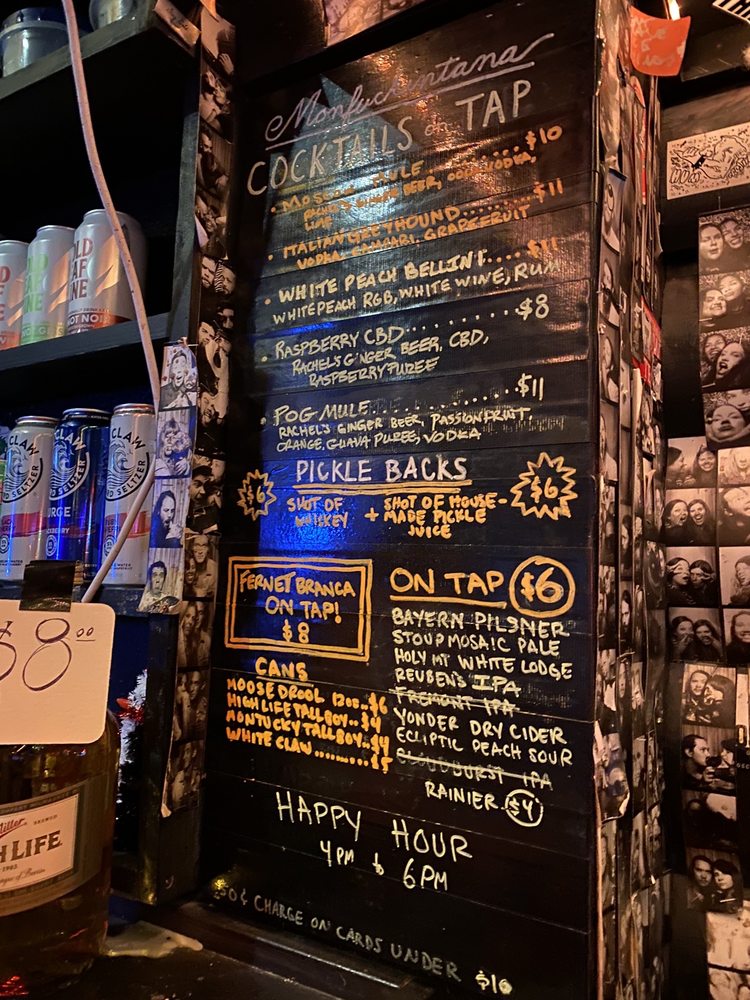 Monfuckintana
COCKTAILS on TAP
• MOSCOW MULE.........$10
RACHEL'S GINGER BEER, VODKA,
LIME
• ITALIAN GREYHOUND.......$11
VODKA, CAMPARI, GRAPEFRUIT
• WHITE PEACH BELLINI....$11
WHITE PEACH RGB, WHITE WINE, RUM
• RASPBERRY CBD.........$8
RACHEL'S GINGER BEER, CBD,
RASPBERRY PUREE
• POG MULE.............$11
RACHEL'S GINGER BEER, PASSIONFRUIT,
ORANGE, GUAVA PUREE, VODKA
PICKLE BACKS
$6
SHOT OF
WHISKEY
+
SHOT OF HOUSE-
MADE PICKLE
JUICE
$6
FERNET BRANCA
ON TAP!
$8
CANS
MOOSE DROOL 12oz..$6
HIGH LIFE TALL BOY..$4
MONTUCKY TALL BOY..$4
WHITE CLAW..........$5
ON TAP $6
BAYERN PILSNER
STOUP MOSAIC PALE
HOLY MT WHITE LODGE
REUBEN'S IPA
FREMONT IPA
YONDER DRY CIDER
ECLIPTIC PEACH SOUR
CLOUDBURST IPA
RAINIER $4
HAPPY HOUR
4PM to 6PM
50¢ CHARGE ON CARDS UNDER $10
$8.00
CLAW
SELTZER
CLAW
SURGE
CLAW
D SELTZER
Miller
H LIFE